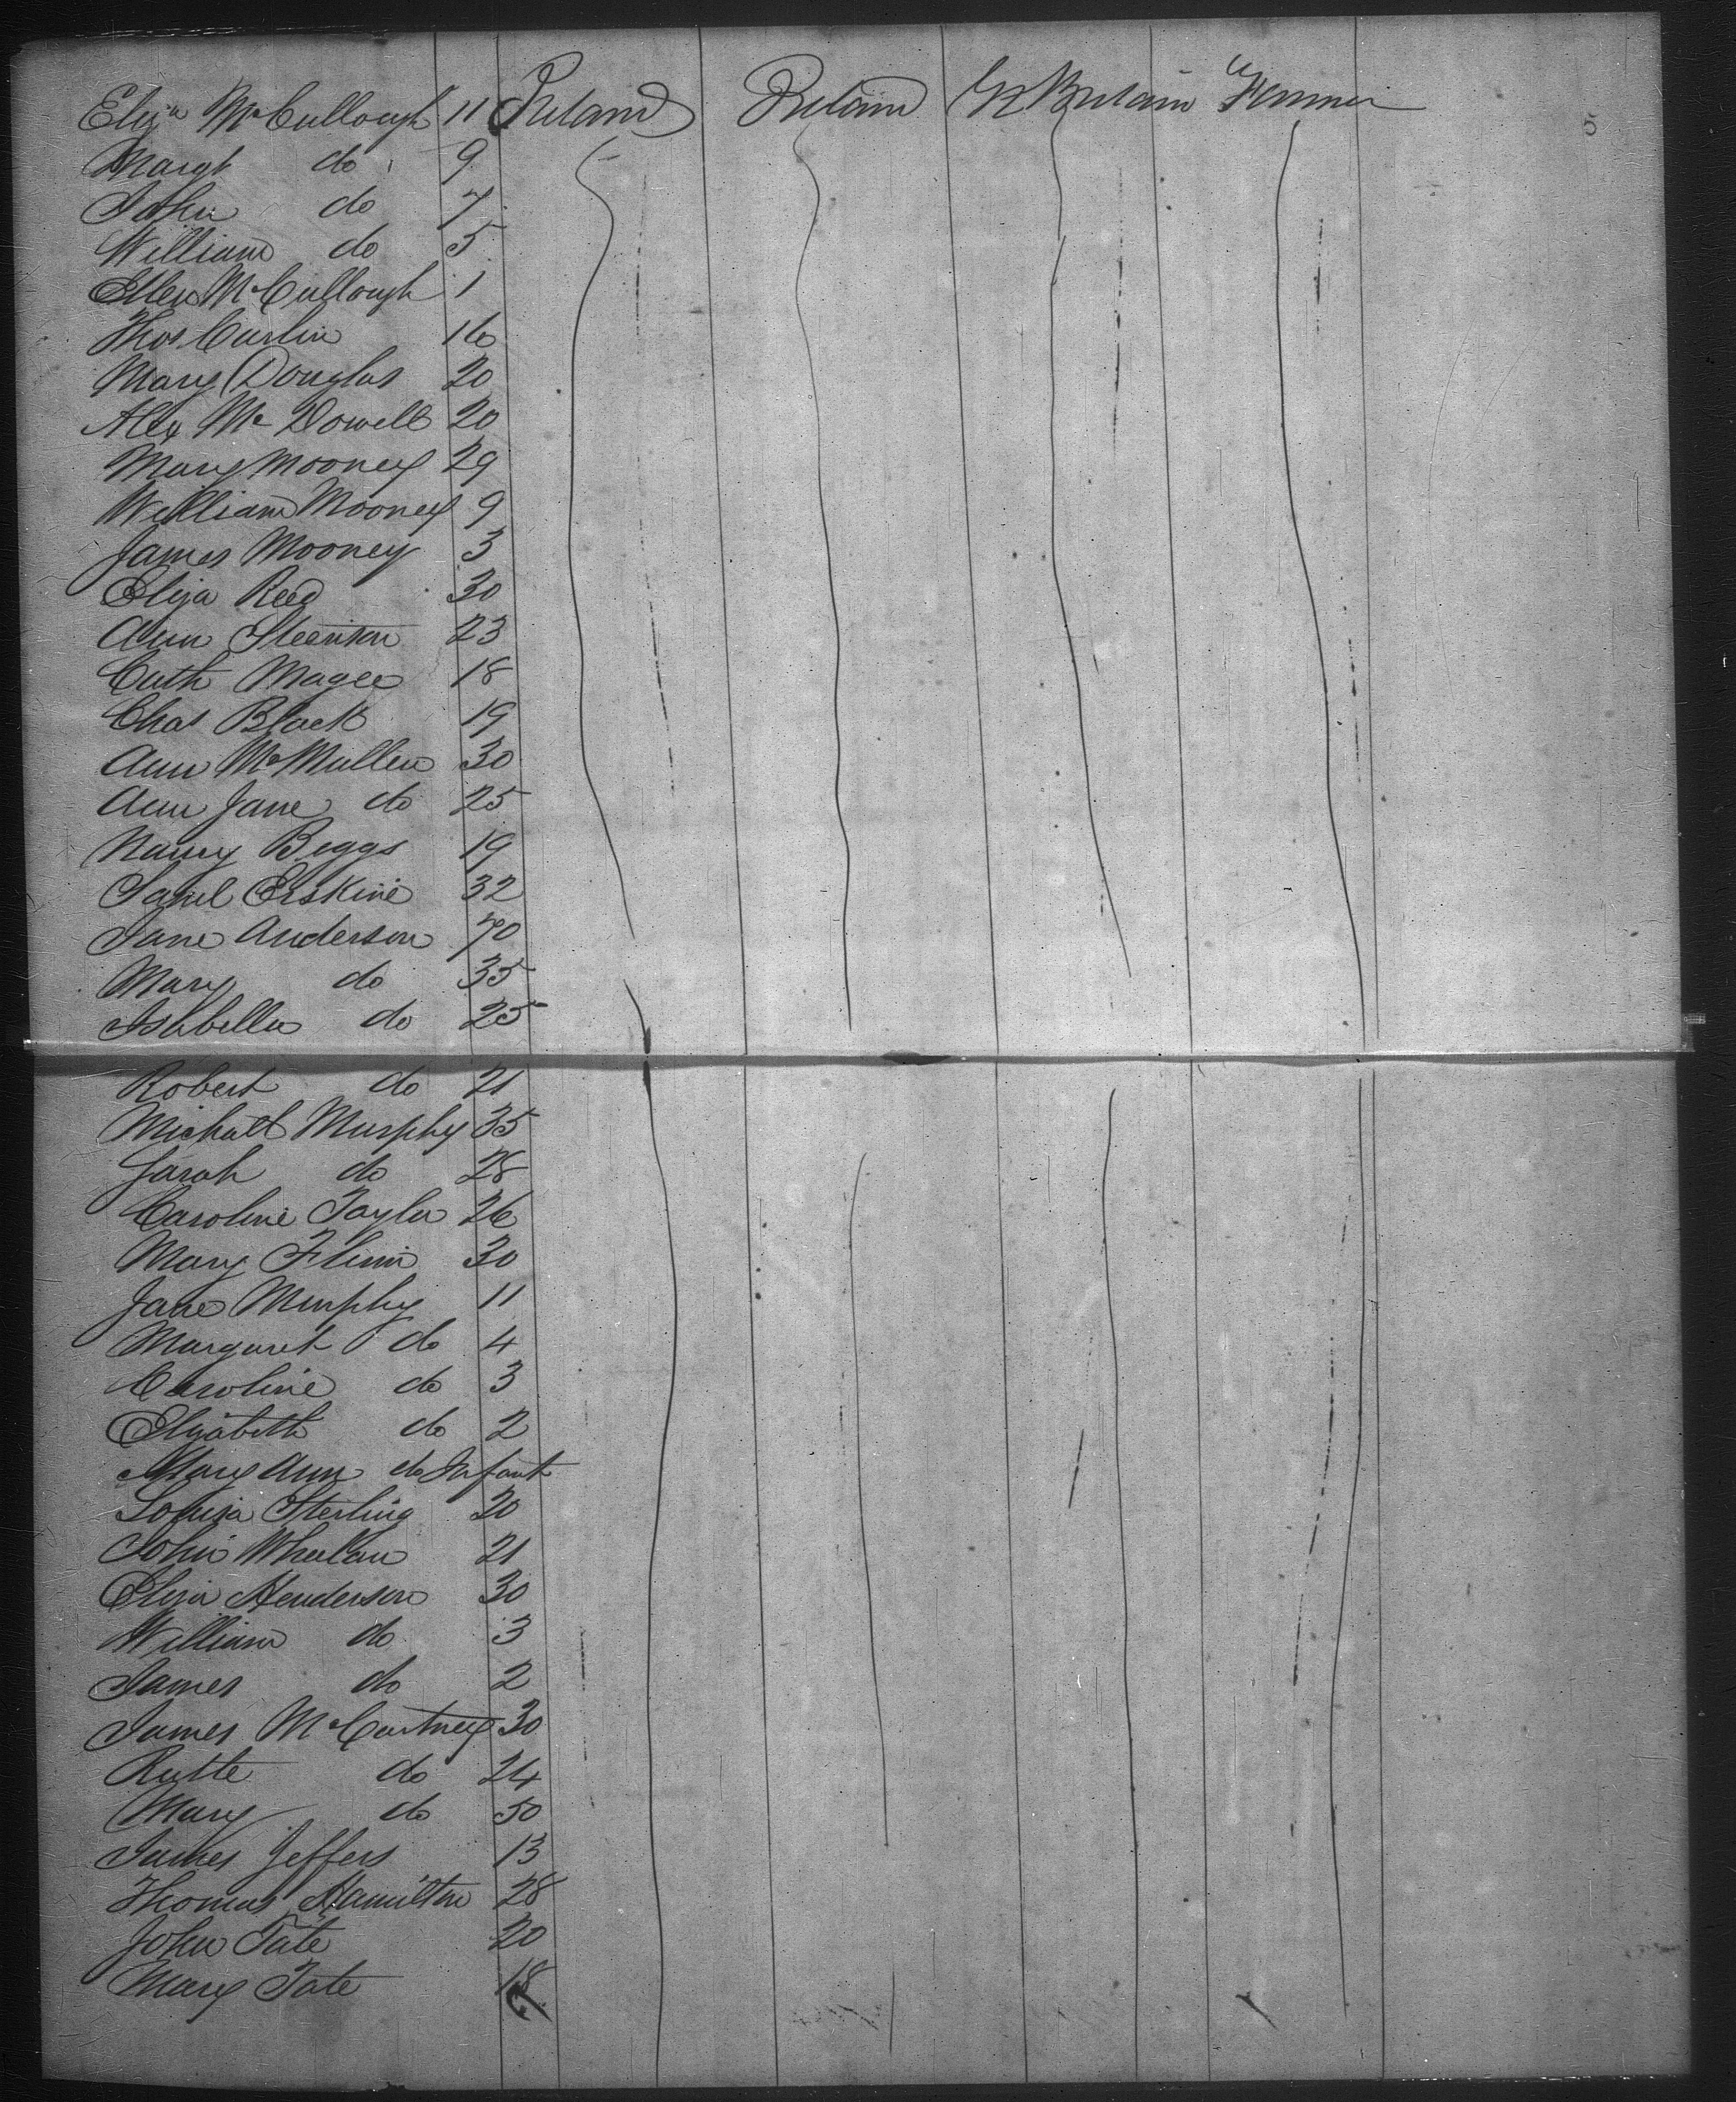 Eliza McCullough 11 Ireland Ireland Gr Britain Farmer 5
Margt do 9
John do 7
William do 5
Ellen McCullough 1
Thos Carlin 16
Mary Douglas 20
Alex McDowell 20
Mary Mooney 29
William Mooney 9
James Mooney 3
Eliza Reed 30
Ann Steenson 23
Cath Magee 18
Chas Black 19
Ann McMullen 30
Ann Jane do 25
Nancy Beggs 19
Saml Erskine 32
Jane Anderson 70
Mary do 35
Isabella do 25
Robert do 21
Michael Murphy 35
Sarah do 28
Caroline Taylor 26
Mary Flinn 30
Jane Murphy 11
Margaret do 4
Caroline do 3
Elizabeth do 2
Mary Ann do Infant
Louisa Sterling 20
John Whelan 21
Eliza Henderson 30
William do 3
James do 2
James McCartney 30
do 24
Mary do 50
James Jeffers 13
Thomas Hamilton 28
John Tate 20
Mary Tate 18